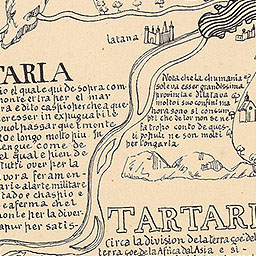 latana
TARIA
io el quale qui de sopra com
monte erina per el mar
ra edito caspio perche a que
esser in expugnabil
vuol passar quelmonte
to e longo molto piu In
engue come de
el quale pien de
tutti over per la
vora feramen
arie alarte militare
dado e chaspio e
e aferma chel
monte per la diver
apur per satis
Nota che la chumania
sole va esser grandissima
provincia e dilatava
molto i suo confini ma
hora sono si consum
pti che de lor non se ne
fa tropo conto de ques
ti populi ne son molti
per longaria
TARTARI
Circa la division dela terra çoe del
terra çoe de la Africa dal Asia e si